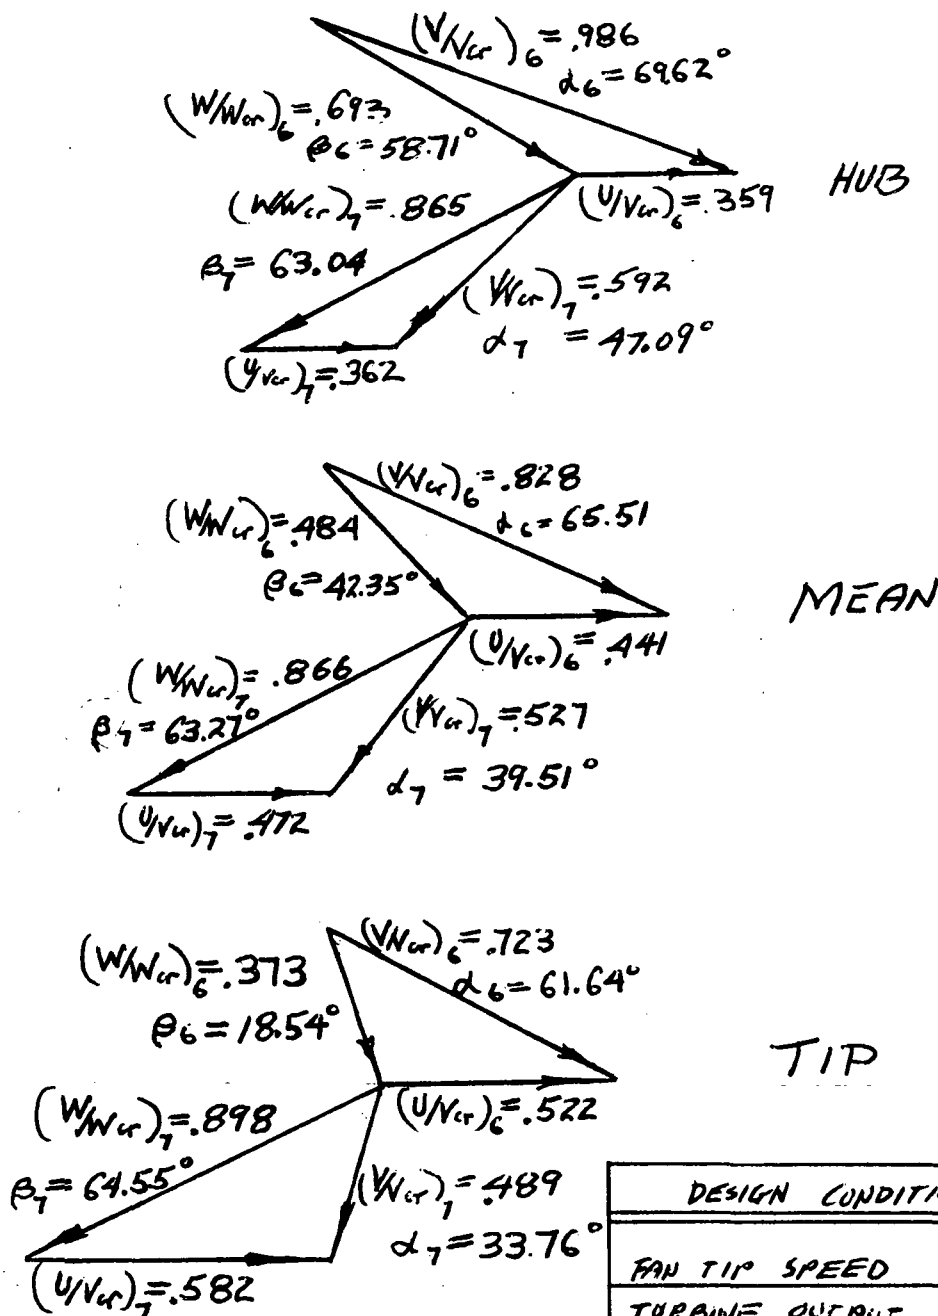 (V/Vcr)6 = .986
α6 = 69.62°
(W/Wcr)6 = .693
β6 = 58.71°
HUB
(U/Vcr)6 = .359
(W/Wcr)7 = .865
β7 = 63.04
(V/Vcr)7 = .592
α7 = 47.09°
(U/Vcr)7 = .362
(V/Vcr)6 = .828
α6 = 65.51
(W/Wcr)6 = .484
β6 = 42.35°
MEAN
(U/Vcr)6 = .441
(W/Wcr)7 = .866
β7 = 63.27°
(V/Vcr)7 = .527
α7 = 39.51°
(U/Vcr)7 = .472
(V/Vcr)6 = .723
α6 = 61.64°
(W/Wcr)6 = .373
β6 = 18.54°
TIP
(U/Vcr)6 = .522
(W/Wcr)7 = .898
β7 = 64.55°
(V/Vcr)7 = .489
α7 = 33.76°
(U/Vcr)7 = .582
DESIGN CONDITI
FAN TIP SPEED
TURBINE OUTPUT